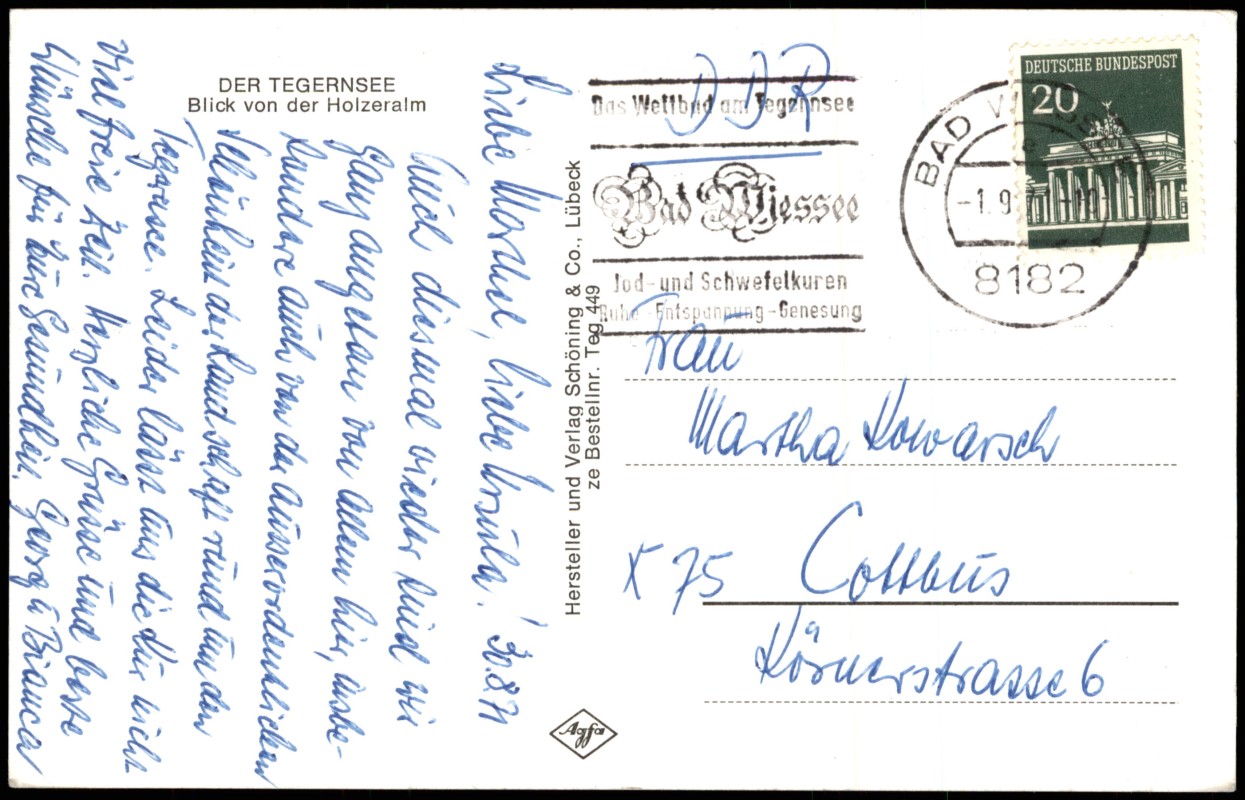 DER TEGERNSEE
Blick von der Holzeralm
Liebe Martha, liebe Ursula! 30.8.71
Auch diesmal wieder sind wir
ganz angetan von allem hier, insbe-
sondere auch von der ausserordentlichen
Schönheit der Landschaft rund um den
Tegernsee. Leider lässt uns die Kur nicht
viel freie Zeit. Herzliche Grüsse und beste
Wünsche für Eure Gesundheit. Georg u Bianca
Hersteller und Verlag Schöning & Co., Lübeck
ze Bestellnr. Teg 449
Agfa
DDR
Das Weltbad am Tegernsee
Bad Wiessee
Jod- und Schwefelkuren
Ruhe - Entspannung - Genesung
BAD WIESSEE
-1.9.
8182
DEUTSCHE BUNDESPOST
20
Frau
Martha Kowarsch
X 75 Cottbus
Körnerstrasse 6